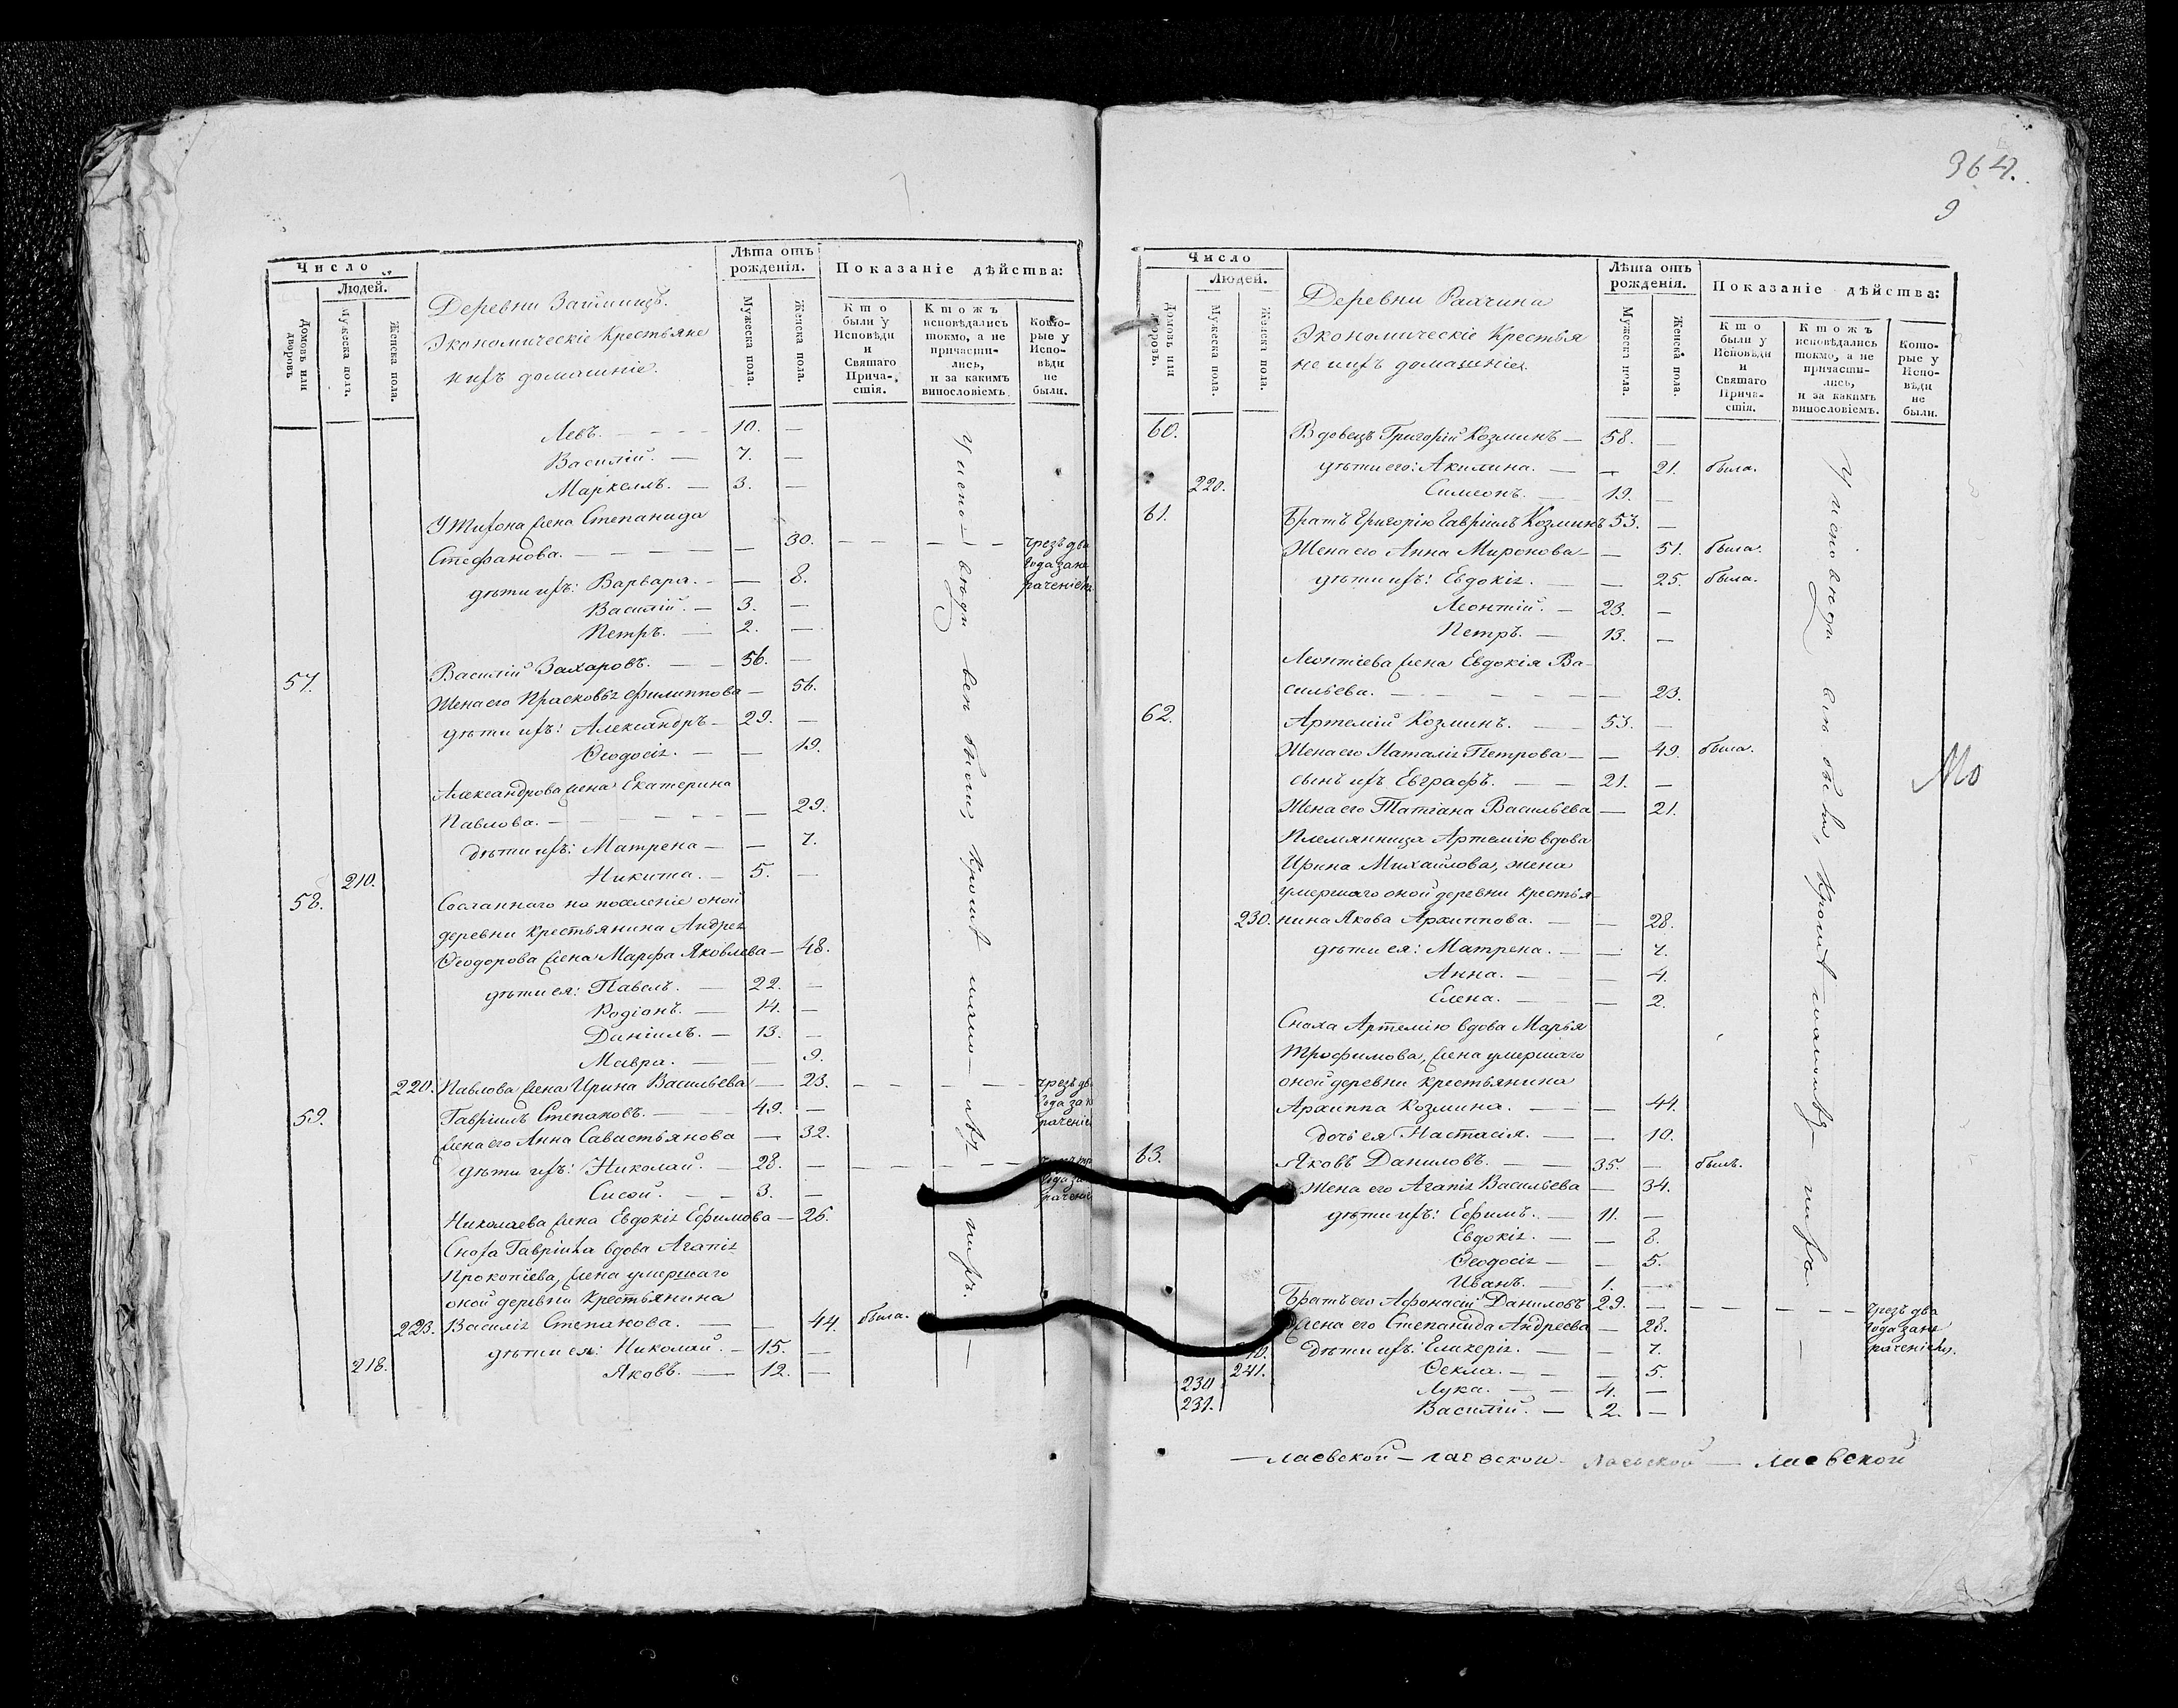 364.
9
Число
Людей.
Домовъ или дворовъ
Мужеска полъ.
Женска пола.
Деревни Займищъ.
Экономическіе крестьяне
ихъ домашніе.
Лѣта отъ рожденія.
Мужеска пола.
Женска пола.
Показаніе дѣйства:
Кто были у Исповѣди и Святаго Причастія.
Ктожъ исповѣдались токмо, а не причастились, и за какимъ винословіемъ.
Которые у Исповѣди не были.
Левъ. — 10. —
Василій. — 7. —
Маркеллъ. — 3. —
Стефанова. — — 30. — — — — чрезъ два
года зане
Варвара. — — 8. раченіемъ
Василій. — 3. —
Петръ. — 2. —
57. Василій Захаровъ. — 56. —
Жена его Прасковья Филиппова — 56.
дѣти ихъ: Александръ — 29. —
Ѳеодосія. — — 19.
Александрова жена Екатерина
Павлова. — — 29.
дѣти ихъ: Матрена — — 7.
210. Никита. — 5. —
58. Сосланнаго на поселеніе оной
деревни крестьянина Андрея
Ѳеодорова жена Марфа Яковлева — 48.
дѣти ея: Павелъ. — 22. —
Родіонъ. — 14. —
Даніилъ. — 13. —
Мавра. — — 9.
220. Павлова жена Ирина Васильева — 23. — — — — чрезъ два
59. Гавріилъ Степановъ. — 49. — года зане
жена его Анна Савастьянова — 32. раченіе
дѣти ихъ: Николай. — 28. — — — —
Сисой. — 3. —
Николаева жена Евдокія Ефимова — 26.
Сноха Гавріила вдова Агапія
Прокопіева, жена умершаго
оной деревни крестьянина
223. Василія Степанова. — — 44. была.
дѣти ея: Николай. — 15. —
218. Яковъ. — 12. —
У исповѣди всѣ были, кромѣ
Число
Людей.
Домовъ или дворовъ.
Мужеска пола.
Женска пола.
Деревни Рахчина
Экономическіе крестья
не ихъ домашніе.
Лѣта отъ рожденія.
Мужеска пола.
Женска пола.
Показаніе дѣйства:
Кто были у Исповѣди и Святаго Причастія.
Ктожъ исповѣдались токмо, а не причастились, и за какимъ винословіемъ.
Которые у Исповѣди не были.
60. Вдовецъ Григорій Козминъ — 58. —
дѣти его: Акилина. — — 21. была.
220. Симеонъ. — 19. —
61. Братъ Григорію Гавріилъ Козминъ 53. —
Жена его Анна Миронова — — 51. была.
дѣти ихъ: Евдокія. — — 25. была.
Леонтій. — 23. —
Петръ. — 13. —
Леонтіева жена Евдокія Ва-
сильева. — — 23.
62. Артемій Козминъ. — 53. —
Жена его Наталія Петрова — — 49. была.
сынъ ихъ Евграфъ. — 21. —
Жена его Татіана Васильева — 21.
Племянница Артемію вдова
Ирина Михайлова, жена
умершаго оной деревни крестья-
230. нина Якова Архиппова. — — 28.
дѣти ея: Матрена. — — 7.
Анна. — — 4.
Елена. — — 2.
Сноха Артемію вдова Марья
Трофимова, жена умершаго
оной деревни крестьянина
Архиппа Козмина. — — 44.
дочь ея Настасія. — — 10.
63. Яковъ Даниловъ. — 35. — былъ.
Жена его Агапія Васильева — 34.
дѣти ихъ: Ефимъ. — 11. —
Евдокія. — — 8.
Ѳеодосія — — 5.
Иванъ. — 1. —
Братъ его Афонасій Даниловъ 29. — — — — — чрезъ два
Жена его Степанида Андреева — 28. года зане
дѣти ихъ: Гликерія. — — 7. раченіемъ.
241. Ѳекла. — — 5.
230 Лука. — 4. —
231. Василій. — 2. —
У исповѣди всѣ были, кромѣ
— лаевской — лаевской — лаевской — лаевской